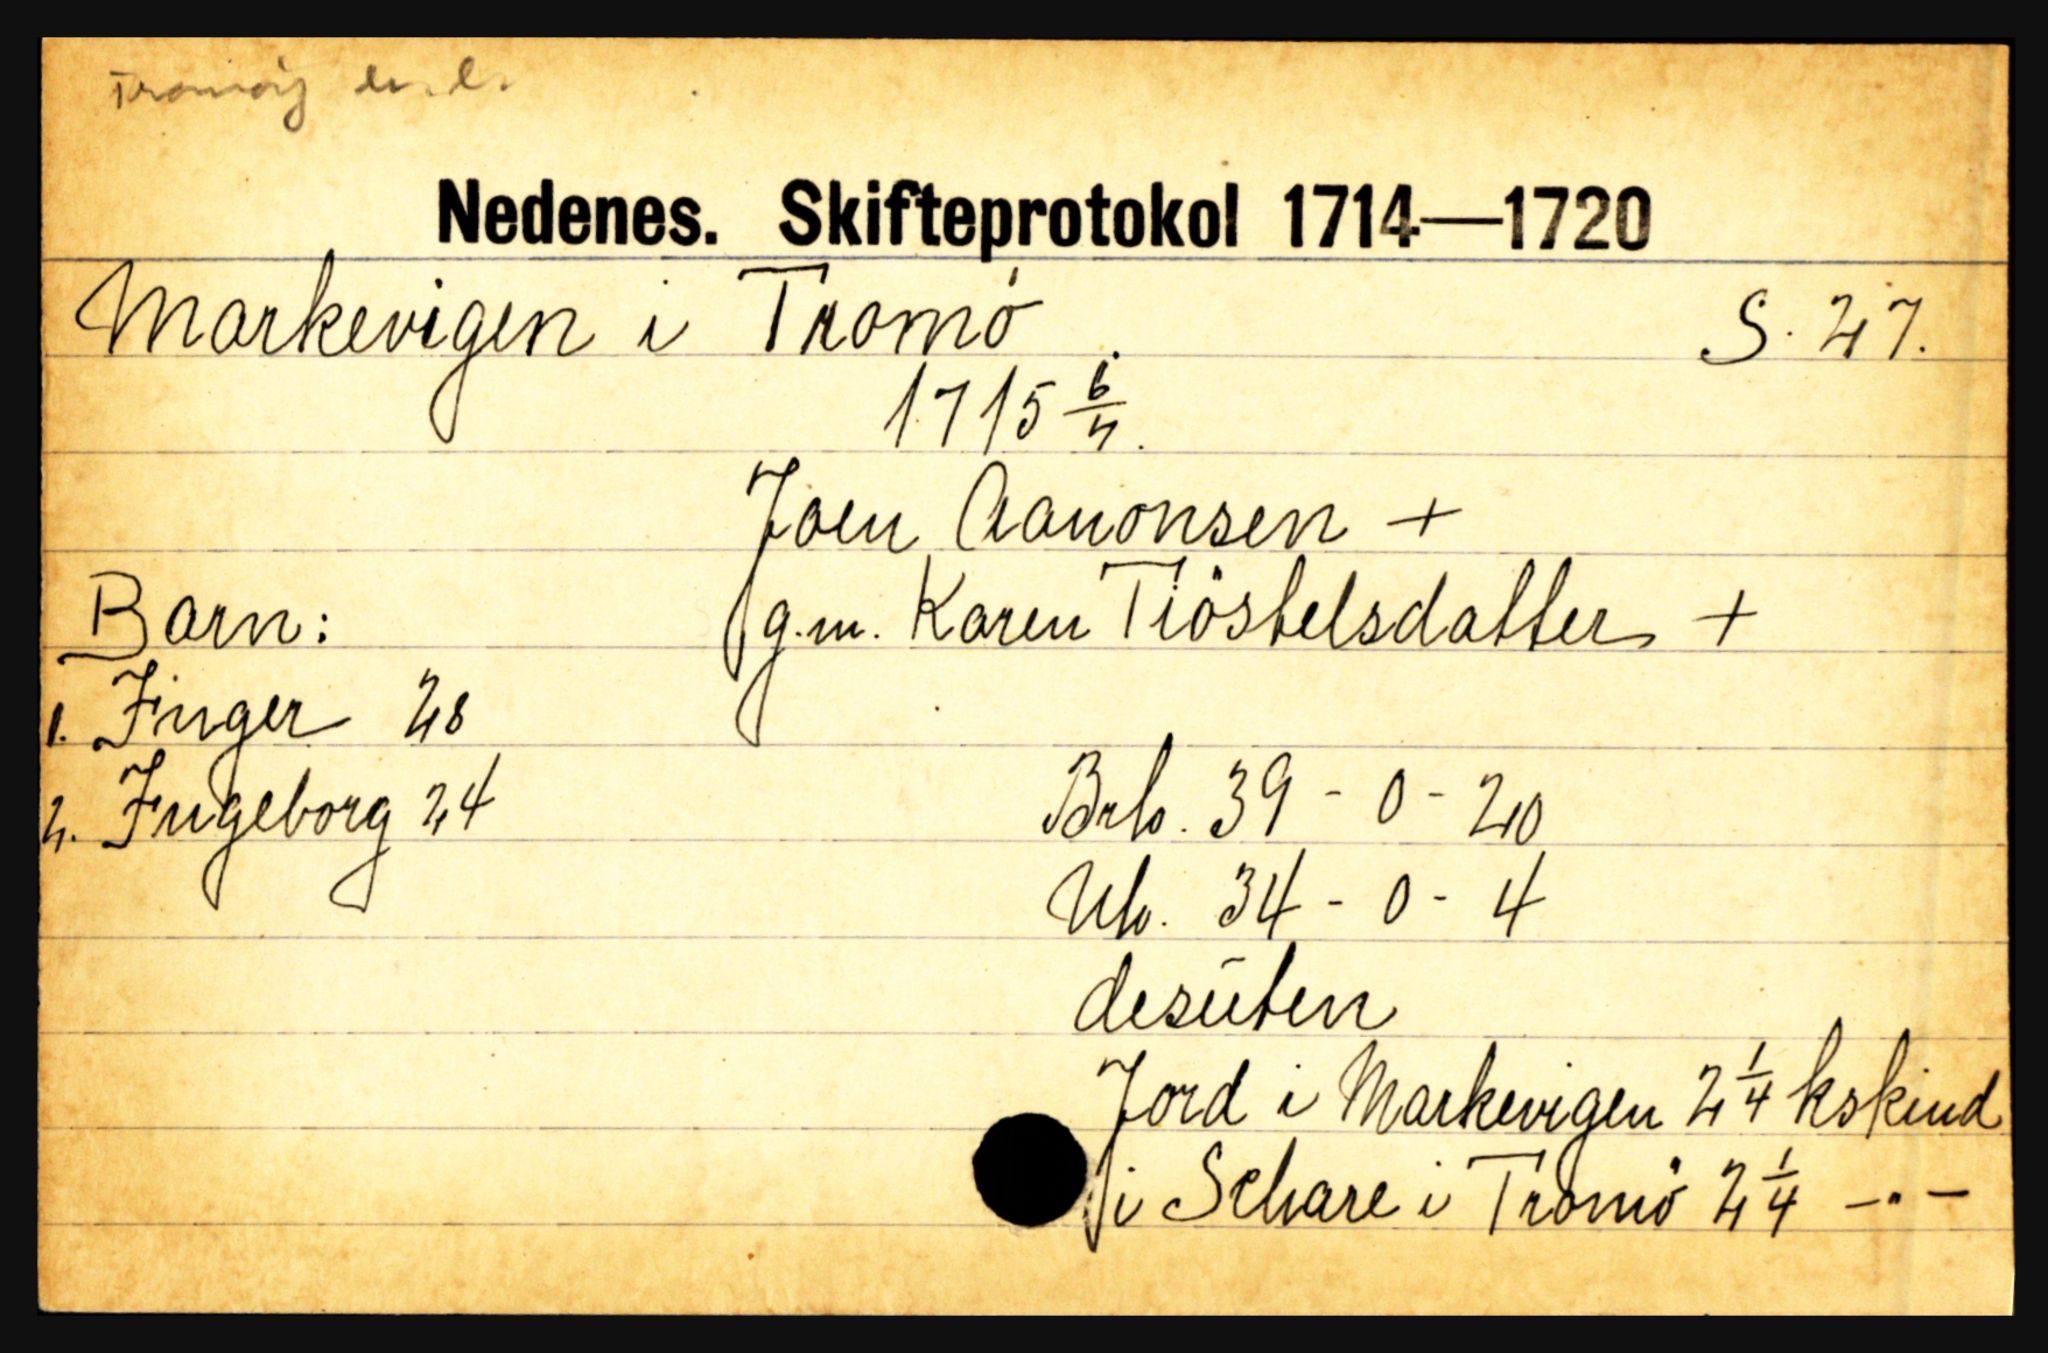 Tromøy
Nedenes. Skifteprotokol 1714—1720
Markevigen i Tromö S. 27.
1715 6/7.
Joen Aanonsen +
Barn: g.m. Karen Tiöstelsdatter +
1. Inger 28
2. Ingeborg 24 Brb. 39 - 0 - 20
Ub. 34 - 0 - 4
desuten
Jord i Markevigen 2 1/4 kskind
i Schare i Tromö 2 1/4 -"-